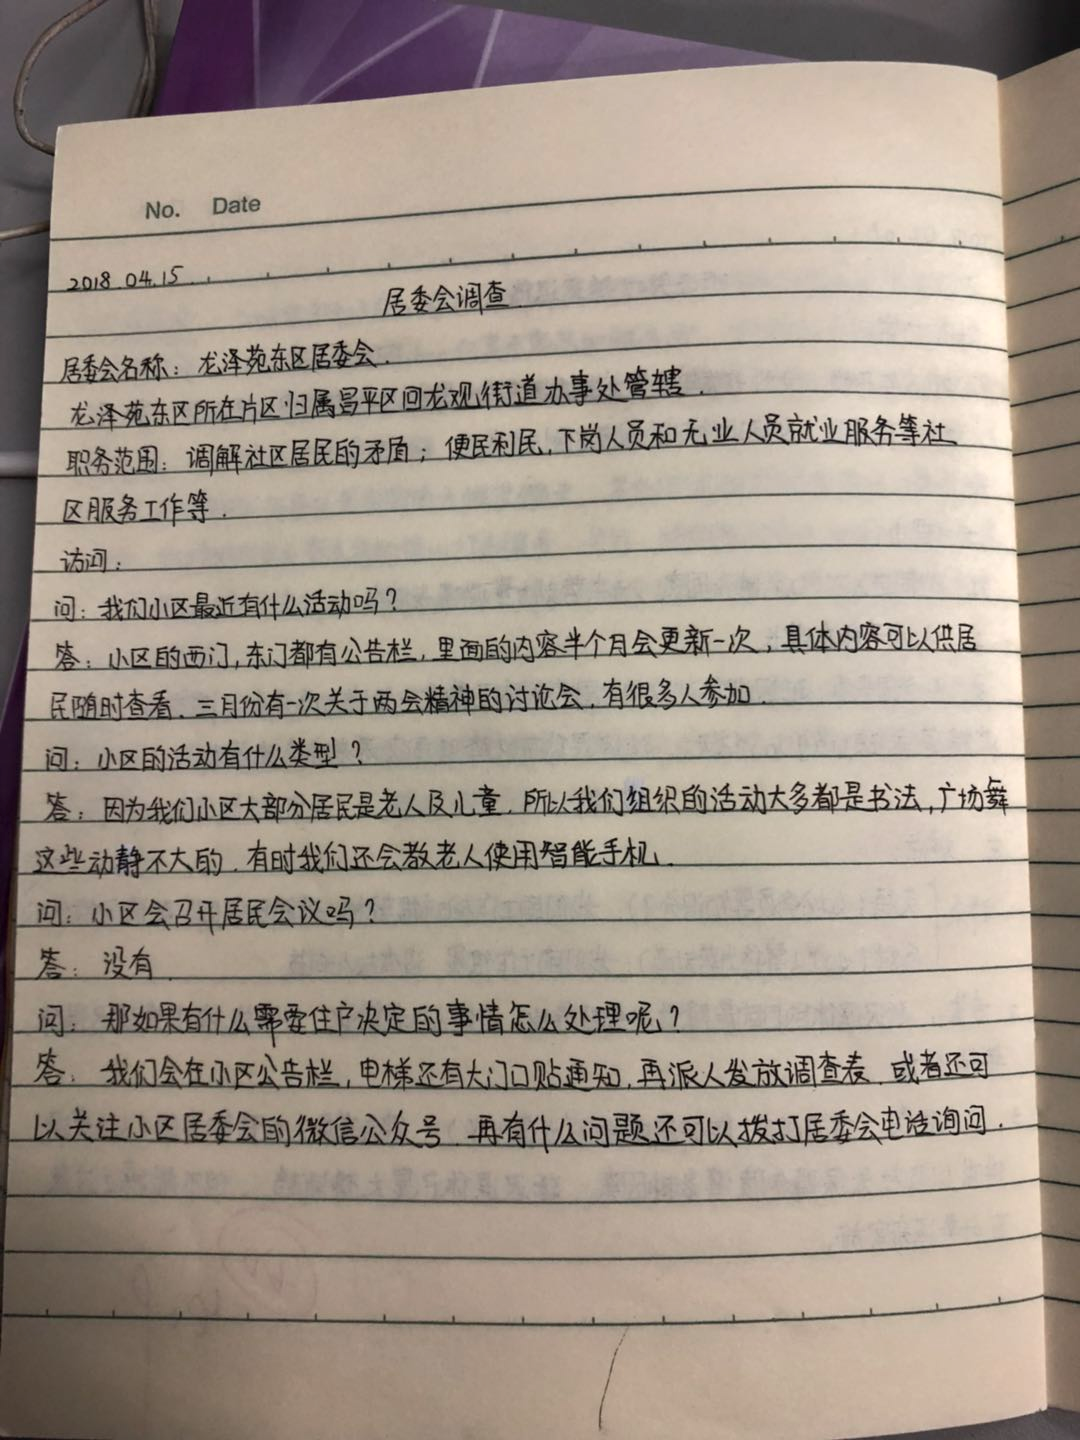 No. Date
2018.04.15.
居委会调查.
居委会名称：龙泽苑东区居委会.
龙泽苑东区所在片区归属昌平区回龙观街道办事处管辖.
职务范围：调解社区居民的矛盾；便民利民,下岗人员和无业人员就业服务等社
区服务工作等.
访问：
问：我们小区最近有什么活动吗？
答：小区的西门,东门都有公告栏,里面的内容半个月会更新一次,具体内容可以供居
民随时查看.三月份有一次关于两会精神的讨论会,有很多人参加.
问：小区的活动有什么类型？
答：因为我们小区大部分居民是老人及儿童,所以我们组织的活动大多都是书法,广场舞
这些动静不大的.有时我们还会教老人使用智能手机.
问：小区会召开居民会议吗？
答：没有.
问：那如果有什么需要住户决定的事情怎么处理呢？
答：我们会在小区公告栏,电梯还有大门口贴通知,再派人发放调查表.或者还可
以关注小区居委会的微信公众号.再有什么问题还可以拨打居委会电话询问.